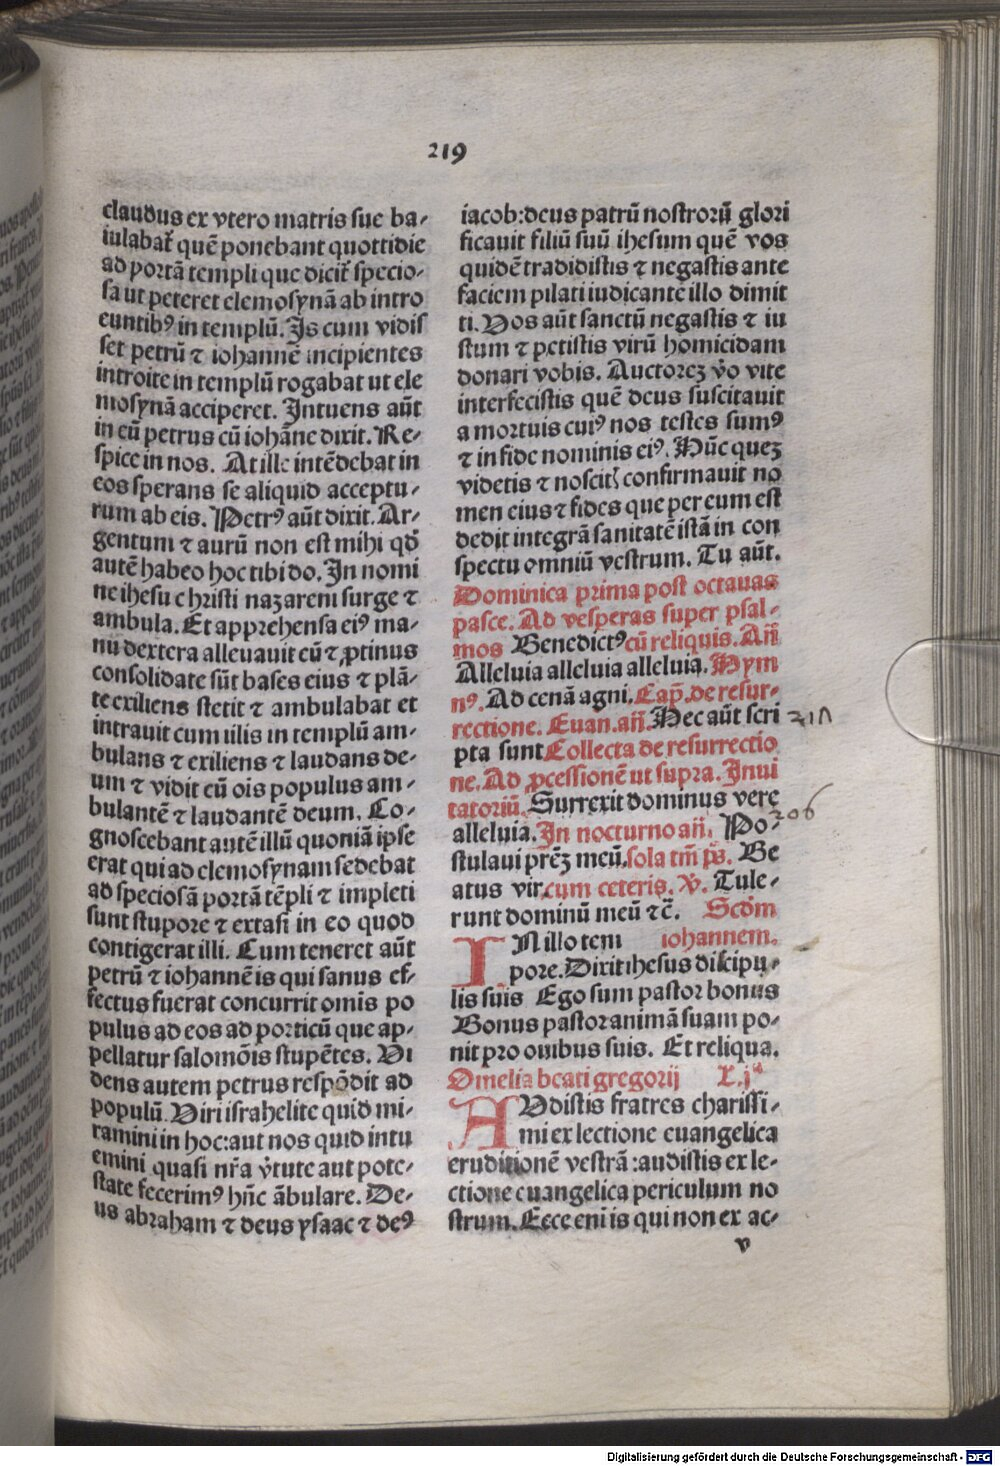 219
claudus ex vtero matris sue ba-
iulabat᷑ quē ponebant quottidie
ad portā templi que dicit᷑ specio-
sa ut peteret elemosynā ab intro
euntibꝰ in templū. Is cum vidis
set petrū ⁊ iohannē incipientes
introite in templū rogabat ut ele
mosynā acciperet. Intuens aūt
in eū petrus cū iohāne dixit. Re-
spice in nos. At ille intēdebat in
eos sperans se aliquid acceptu-
rum ab eis. Petrꝰ aūt dixit. Ar-
gentum ⁊ aurū non est mihi qđ
autē habeo hoc tibi do. In nomi
ne ihesu christi nazareni surge ⁊
ambula. Et apprehensa eiꝰ ma-
nu dextera alleuauit cū ⁊ ꝓtinus
consolidate sūt bases eius ⁊ plā-
te exiliens stetit ⁊ ambulabat et
intrauit cum illis in templū am-
bulans ⁊ exiliens ⁊ laudans de-
um ⁊ vidit eū ois populus am-
bulantē ⁊ laudantē deum. Co-
gnoscebant autē illū quoniā ipse
erat qui ad elemosynam sedebat
ad speciosā portā tēpli ⁊ impleti
sunt stupore ⁊ extasi in eo quod
contigerat illi. Cum teneret aūt
petrū ⁊ iohannē is qui sanus ef-
fectus fuerat concurrit omīs po
pulus ad eos ad porticū que ap-
pellatur salomōis stupētes. Vi
dens autem petrus respōdit ad
populū. Viri israhelite quid mi-
ramini in hoc: aut nos quid intu
emini quasi nr̄a v̓tute aut pote-
state fecerimꝰ hūc ābulare. De-
us abraham ⁊ deus ysaac ⁊ deꝰ
iacob: deus patrū nostrorū glori
ficauit filiū suū ihesum quē vos
quidē tradidistis ⁊ negastis ante
faciem pilati iudicante illo dimit
ti. Vos aūt sanctū negastis ⁊ iu
stum ⁊ petistis virū homicidam
donari vobis. Auctorez v̓o vite
interfecistis quē deus suscitauit
a mortuis cuiꝰ nos testes sumꝰ
⁊ in fide nominis eiꝰ. Hūc quez
videtis ⁊ noscit᷑ confirmauit no
men eius ⁊ fides que per eum est
dedit integrā sanitatē istā in con
spectu omniū vestrum. Tu aūt.
Dominica prima post octauas
pasce. Ad vesperas super psal-
mos Benedictꝰ cū reliquis. Añ
Alleluia alleluia alleluia. Hym
nꝰ. Ad cenā agni. Cap̄. de resur-
rectione. Euan. añ. Hec aūt scri
pta sunt Collecta de resurrectio
ne. Ad ꝓcessionē ut supra. Inui
tatoriū. Surrexit dominus vere
206
alleluia. In nocturno añ. Po-
stulaui prēz meū. sola tm̄ ps̄. Be
atus vir. cum ceteris. V. Tule-
runt dominū meū ⁊c̄. Scd̄m
IN illo tem iohannem.
pore. Dixit ihesus discipu-
lis suis Ego sum pastor bonus
Bonus pastor animā suam po-
nit pro ouibus suis. Et reliqua.
Omelia beati gregorij L. jᵃ
AVdistis fratres charissi-
mi ex lectione euangelica
eruditionē vestrā: audistis ex le-
ctione euangelica periculum no
strum. Ecce eni is qui non ex ac-
v
Digitalisierung gefördert durch die Deutsche Forschungsgemeinschaft - DFG